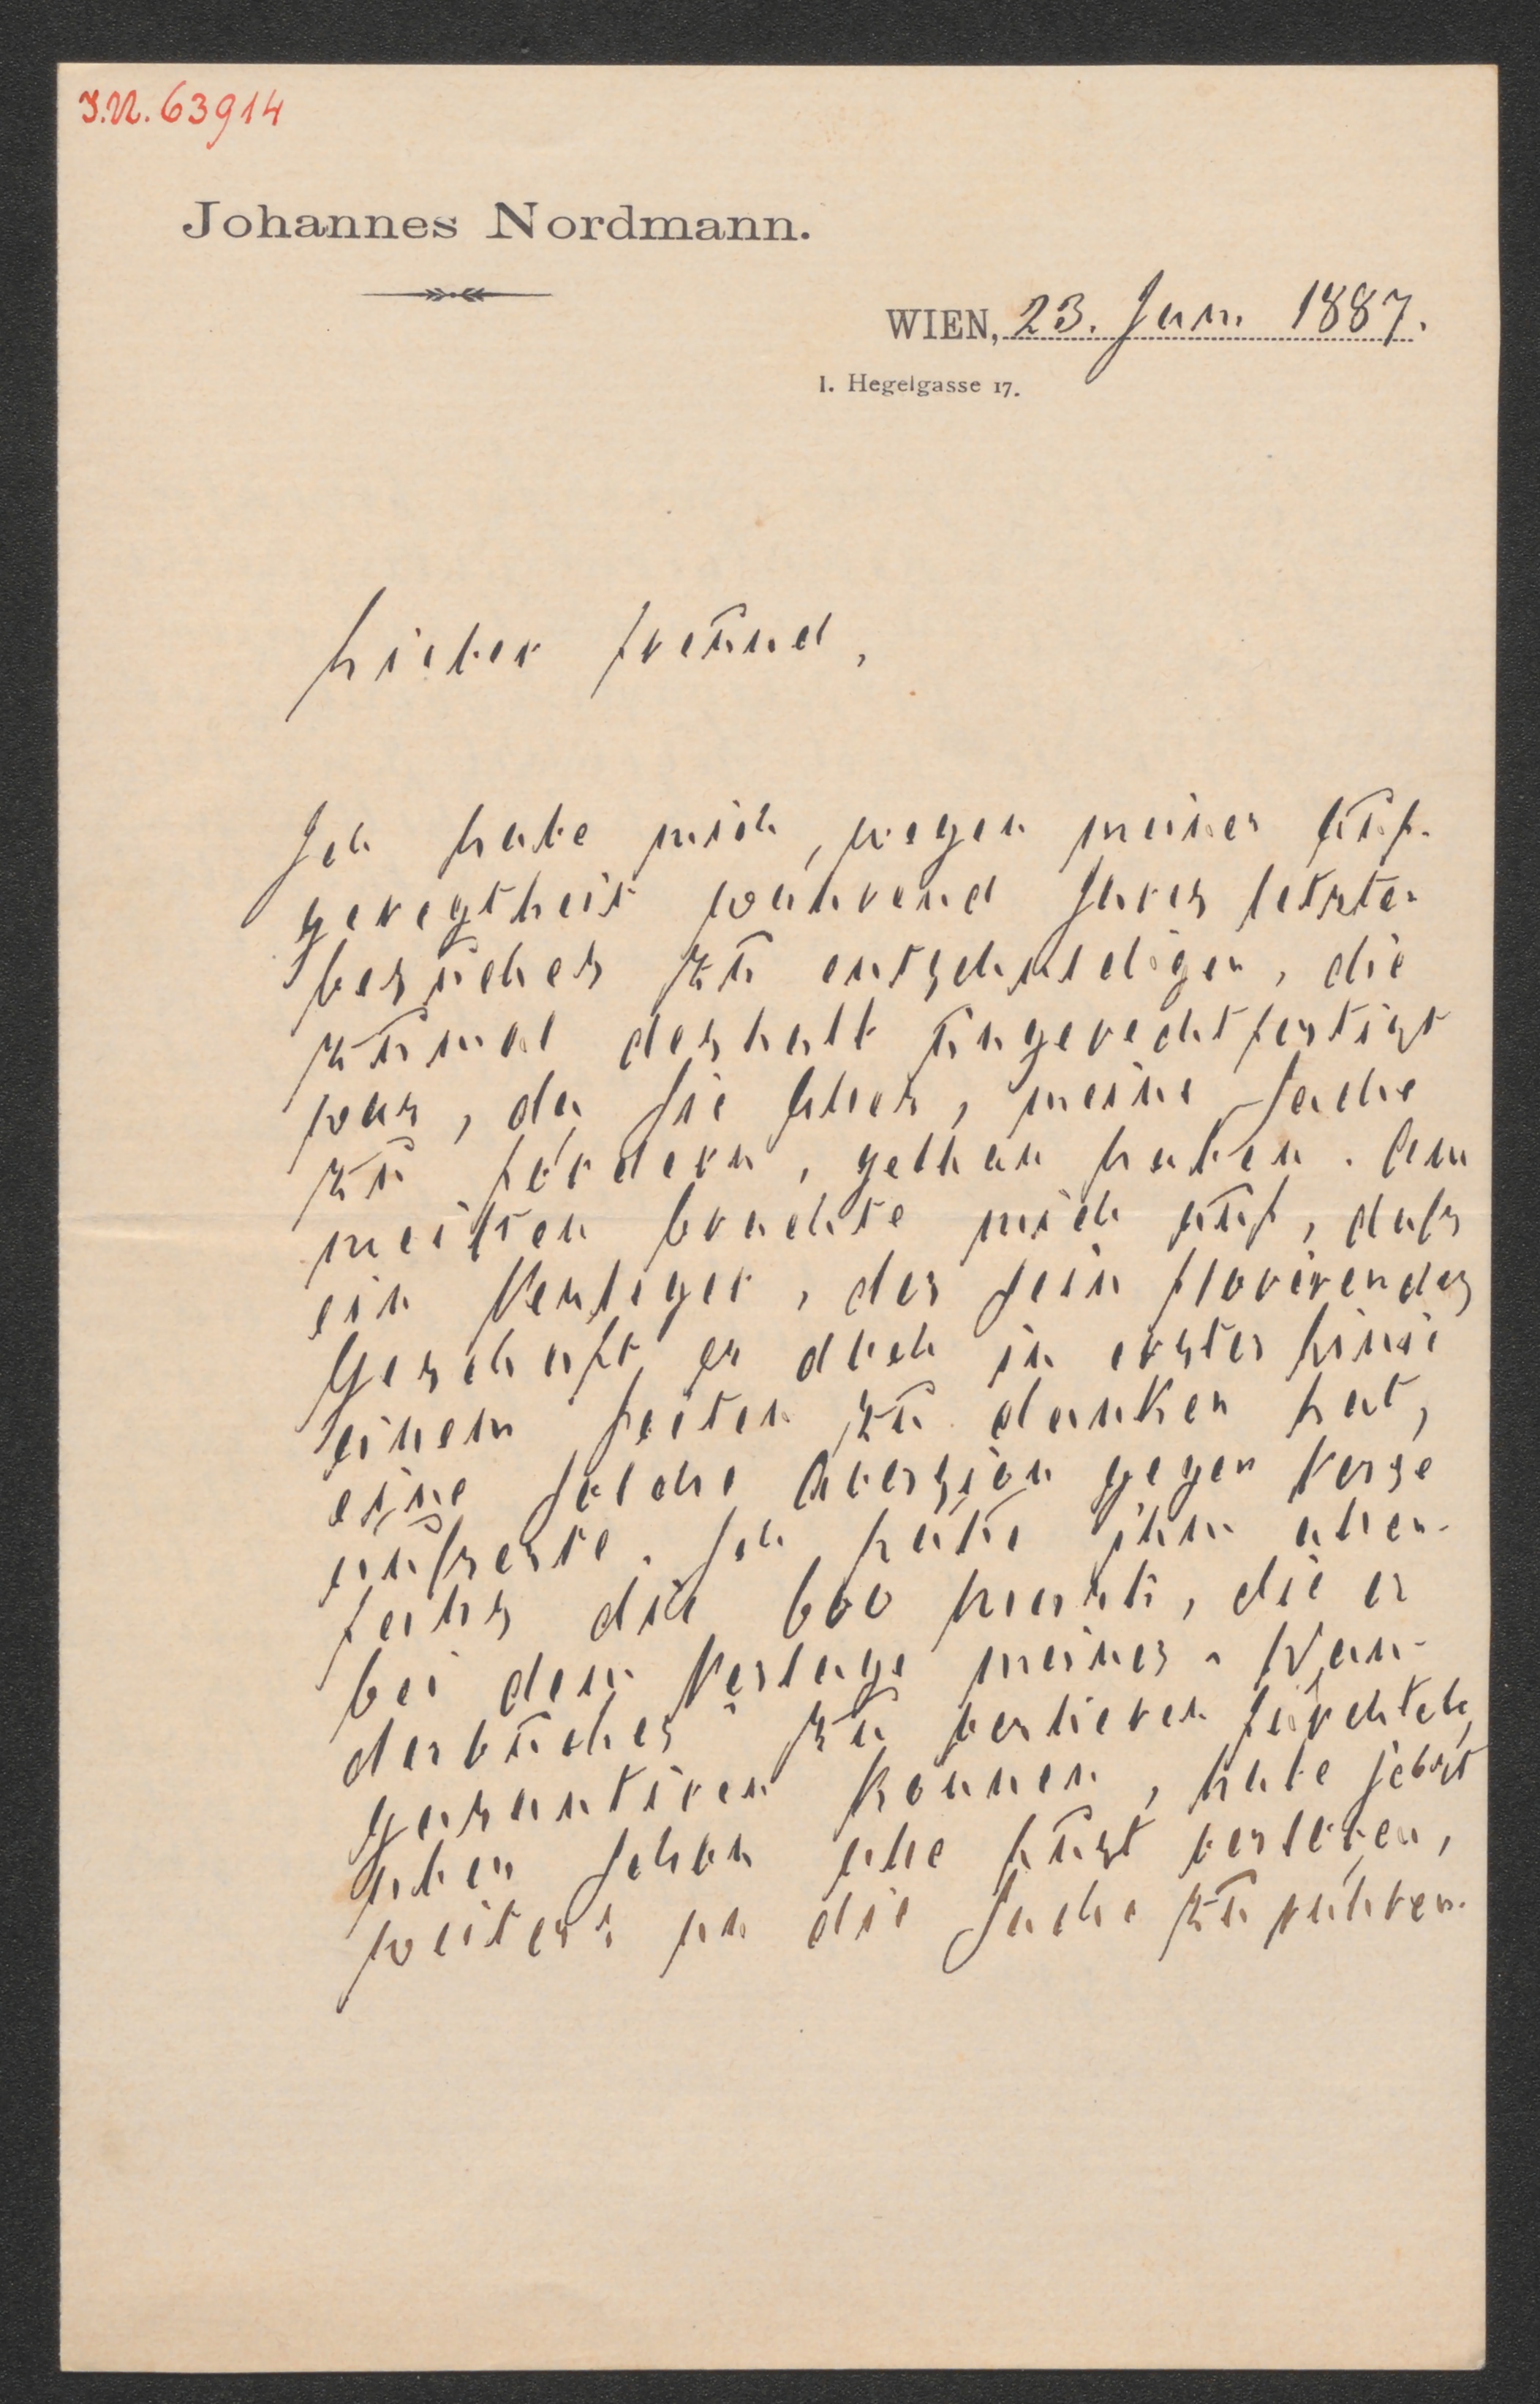 I.N. 63914
Johannes Nordmann.
WIEN, 23. Jun. 1887.
I. Hegelgasse 17.
Lieber Freund,
Ich habe mich, wegen meiner Auf-
geregtheit während Ihres letzten
Besuches zu entschuldigen, die
zumal deshalb ungerechtfertigt
war, da Sie Alles, meine Sache
zu fördern, gethan haben. Am
meisten brachte mich auf, daß
ein Verleger, der sein florirendes
Geschäft er doch in erster Linie
einem Poeten zu danken hat,
eine solche Aversion gegen Verse
äußerte. Ich hätte ihm allen-
falls die 600 Mark, die er
bei dem Verlage meines „Wan-
derbuches" zu verlieren fürchtete,
garantiren können, habe jetzt
aber schon alle Lust verloren,
weiters an die Sache zu rühren.